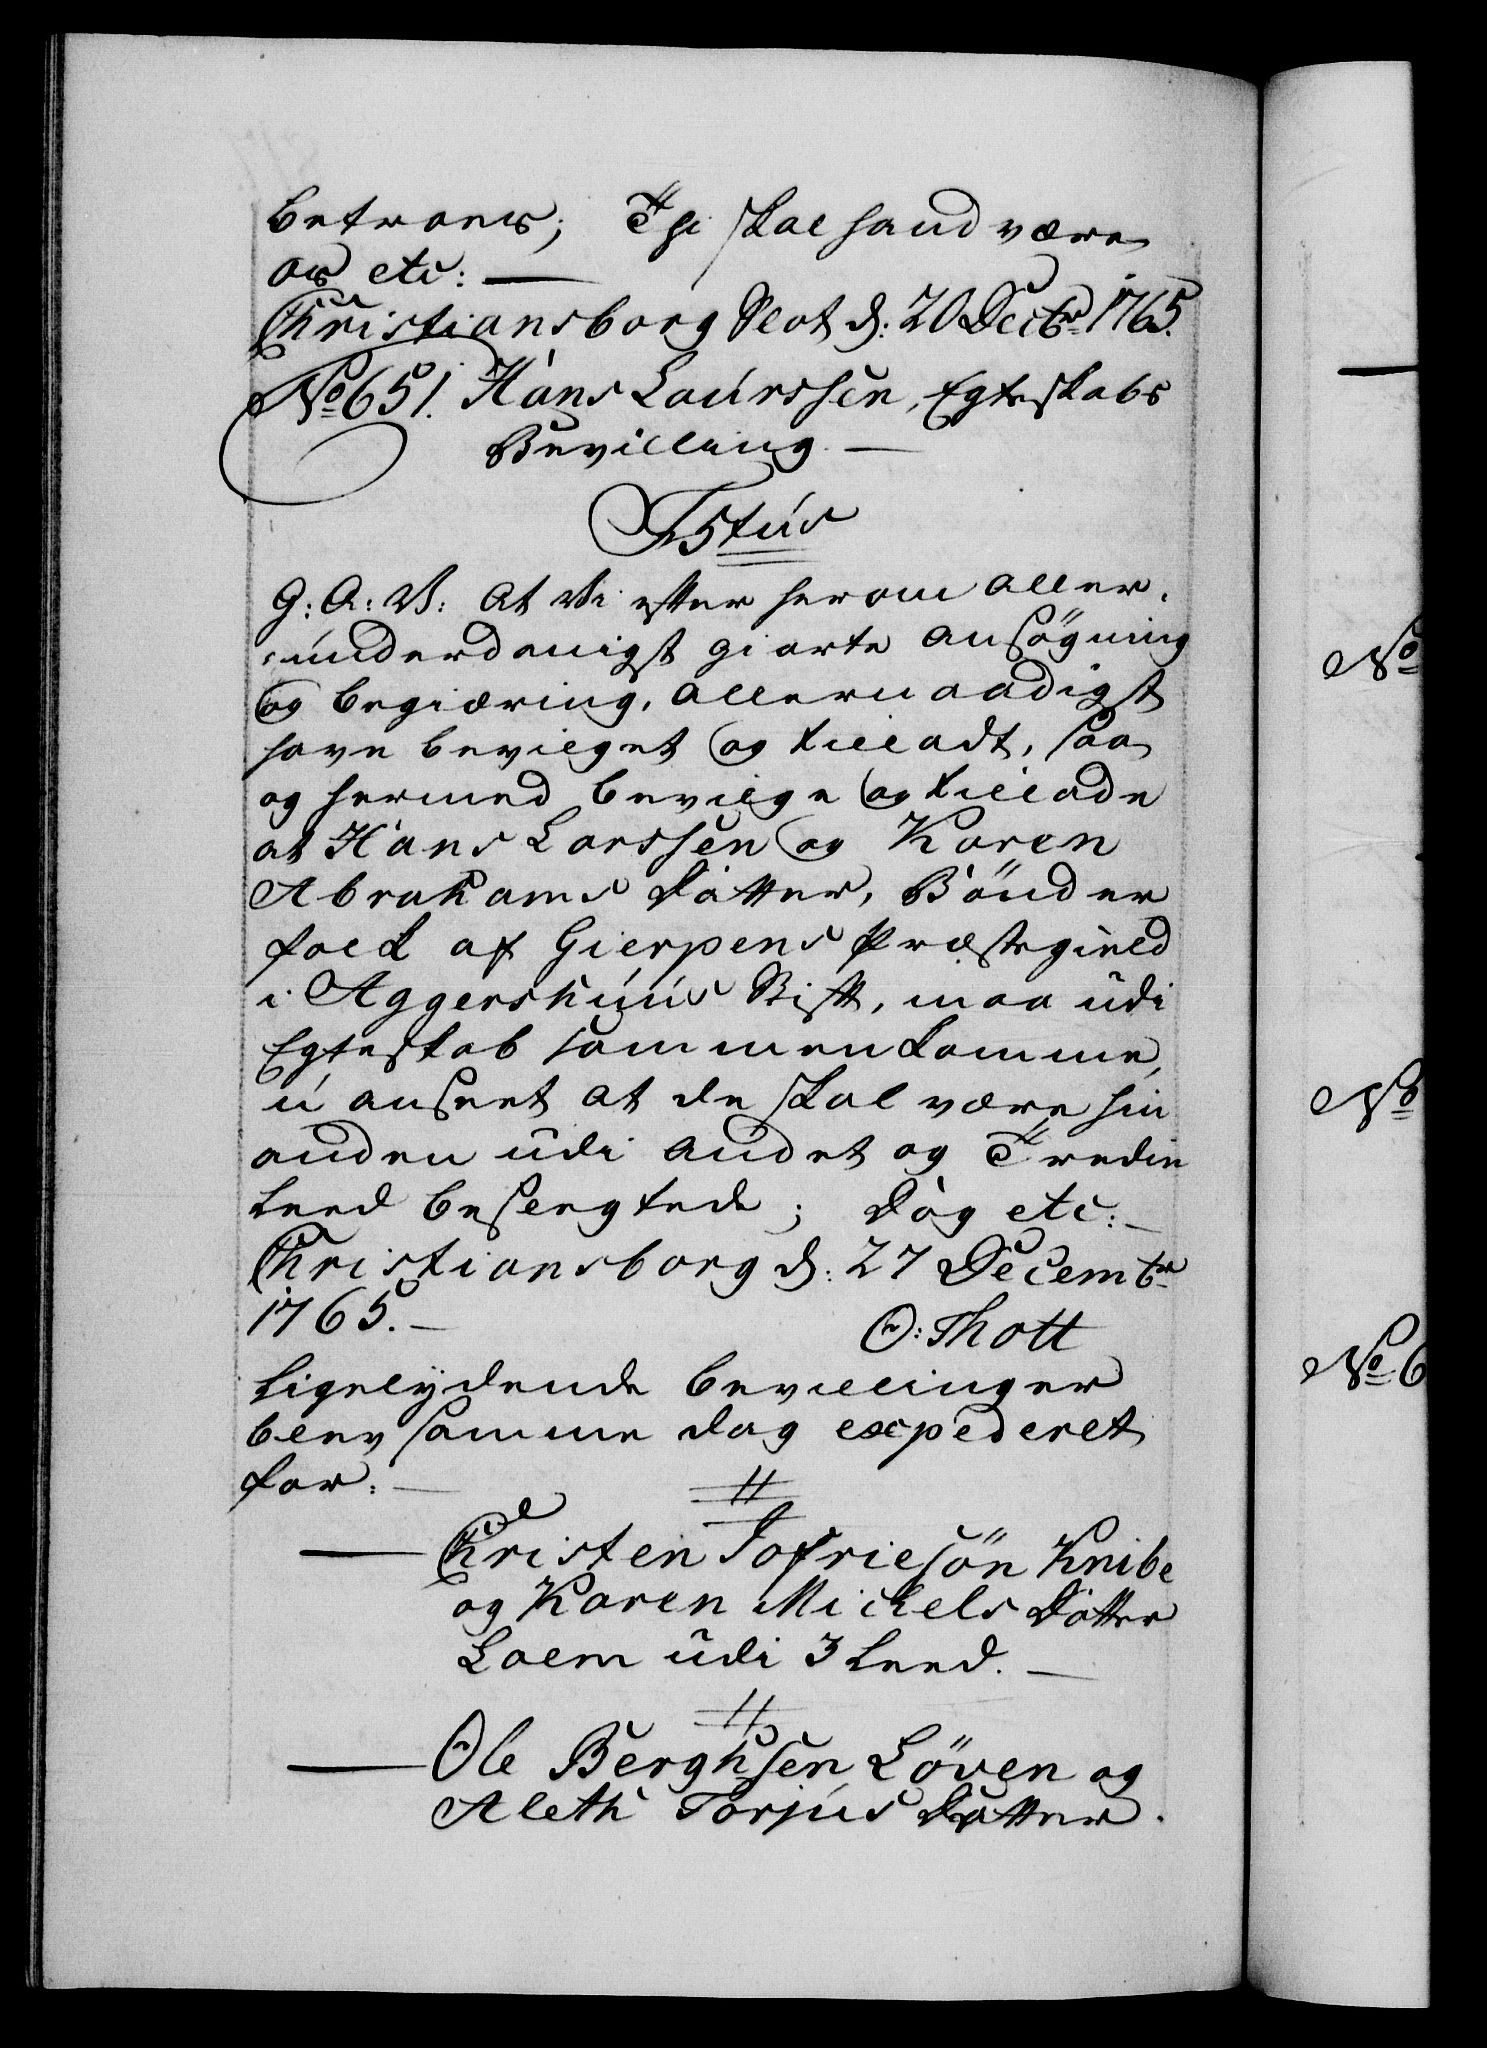 betroes; Thi skal hand være
os etc: —
Christiansborg Slot d: 20 Decbr 1765.
No 651. Hans Laurssen, Egteskabs
Bevilling. —
Fstus
G: A: V: At Vi efter herom aller-
underdanigst giorte Ansögning
og begiæring, allernaadigst
have bevilget og tilladt, saa
og hermed bevilge og tillade
at Hans Larssen og Karen
Abrahams Datter, Bönder
folck af Gierpens Præstegield
i Aggershuus Stift, maa udi
Egteskab sammenkomme,
uanseet at de skal være hin
anden udi andet og Tredie
Leed besvogrede; Dog etc: —
Christiansborg d: 27 Decembr
1765. —
O: Thott
Ligelydende bevillinger
blev samme dag expederet
for: —
Christen Tofriesön Knibe
og Karen Mickels Datter
Loem udi 3 Leed. —
Ole Berghsen Löven og
Aleth Torjus Datter.
No
No
No 6